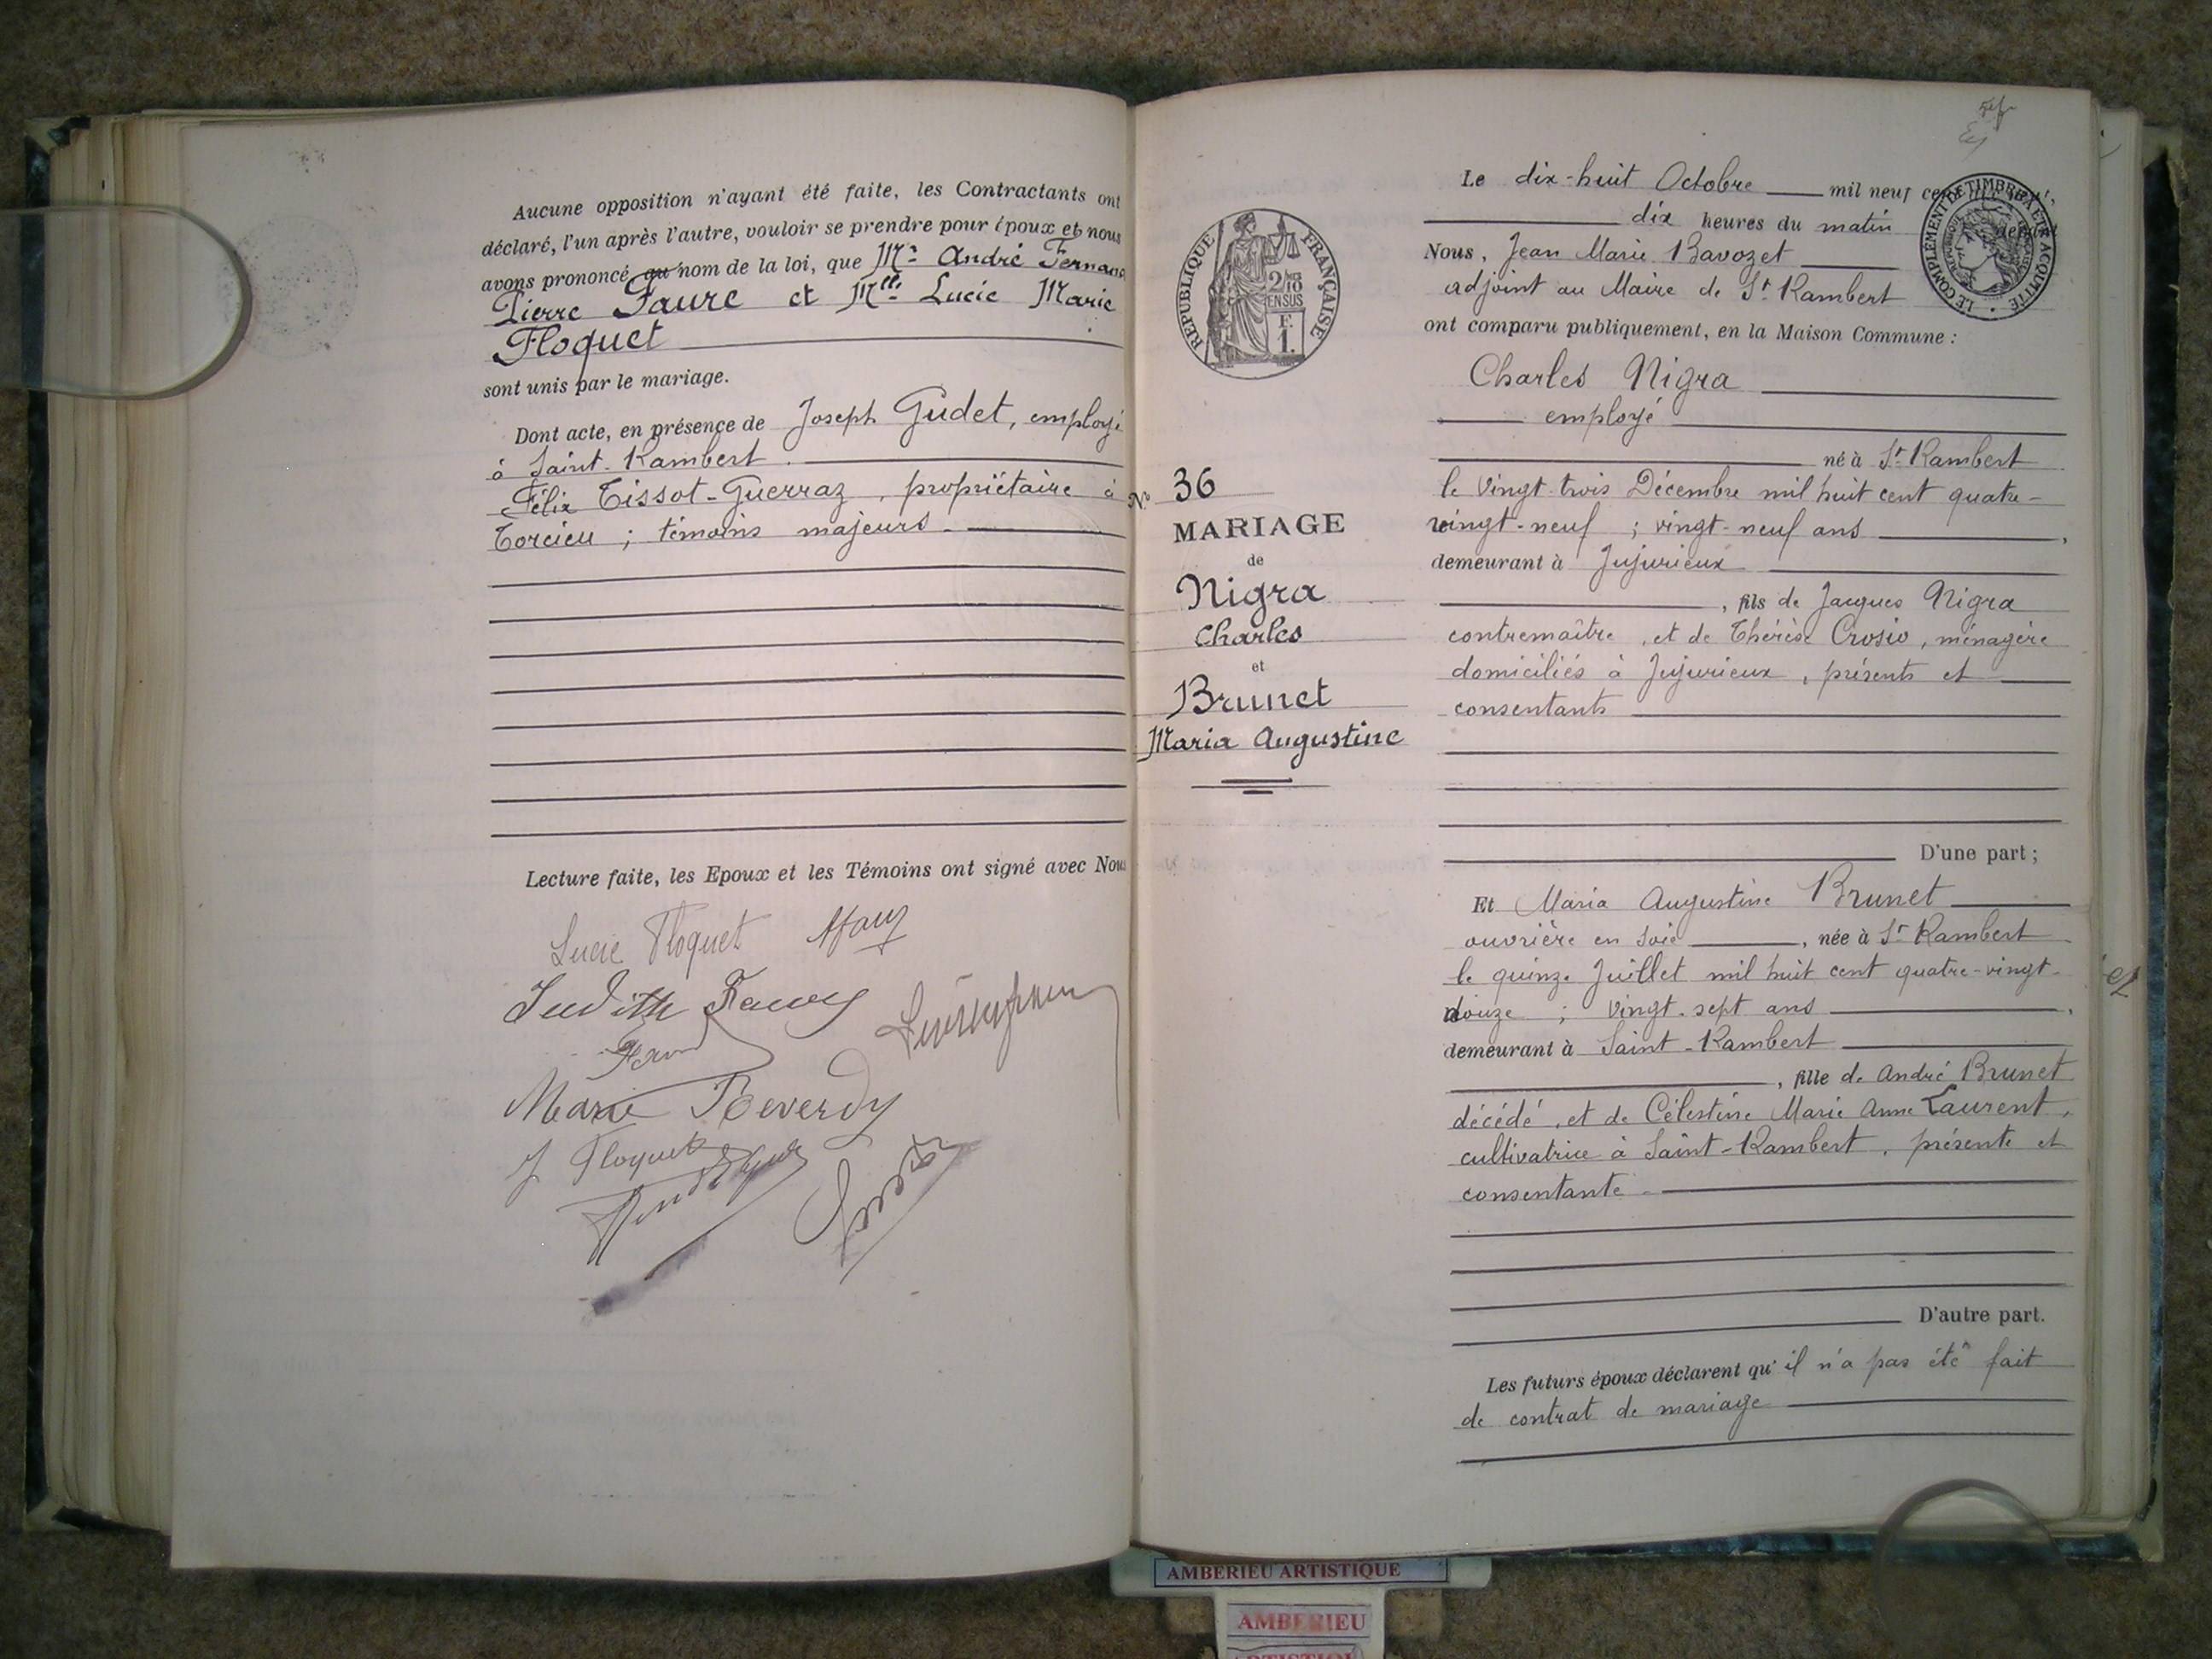 Aucune opposition n'ayant été faite, les Contractants ont
déclaré, l'un après l'autre, vouloir se prendre pour époux et nous
avons prononcé au nom de la loi, que Mr André Fernand
Pierre Faure et Melle Lucie Marie
Floquet
sont unis par le mariage.
Dont acte, en présence de Joseph Gudet, employé
à Saint-Rambert.
Félix Tissot-Guerraz, propriétaire à
Torcieu ; témoins majeurs.
Lecture faite, les Epoux et les Témoins ont signé avec Nous
Lucie Floquet
Judith
Marie Reverdy
J Floquet
REPUBLIQUE FRANÇAISE
2/10
EN SUS
F.
1.
No 36
MARIAGE
de
Nigra
Charles
et
Brunet
Maria Augustine
Le dix-huit Octobre mil neuf
dix heures du matin
LE COMPLÉMENT DE TIMBRE A ÉTÉ ACQUITTÉ
Nous, Jean Marie Bavozet
adjoint au Maire de St Rambert
ont comparu publiquement, en la Maison Commune :
Charles Nigra
employé
né à St Rambert
le vingt-trois Décembre mil huit cent quatre-
vingt-neuf ; vingt-neuf ans ,
demeurant à Jujurieux
, fils de Jacques Nigra
contremaître, et de Thérèse Crosio, ménagère
domiciliés à Jujurieux, présents et
consentants
D'une part ;
Et Maria Augustine Brunet
ouvrière en soie , née à St Rambert
le quinze Juillet mil huit cent quatre-vingt-
douze ; vingt-sept ans ,
demeurant à Saint-Rambert
, fille de André Brunet
décédé, et de Célestine Marie Anne Laurent,
cultivatrice à Saint-Rambert, présente et
consentante.
D'autre part.
Les futurs époux déclarent qu'il n'a pas été fait
de contrat de mariage
AMBERIEU ARTISTIQUE
AMBERIEU